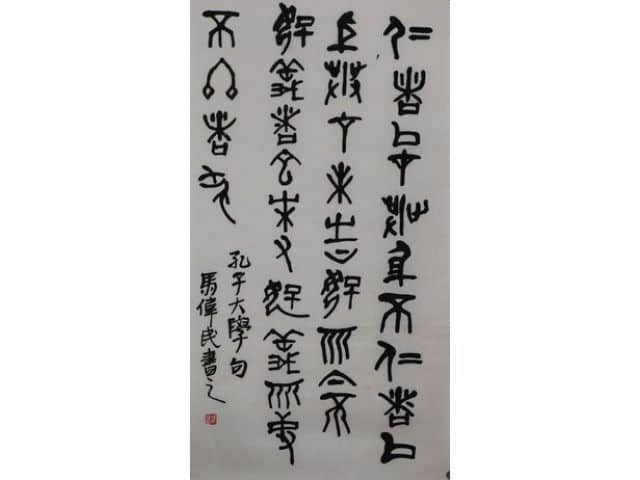 仁者以財發身不仁者以
身發財未有上好而下不
好義者也未有好義而事
不終者也
孔子大學句
馬偉民書之